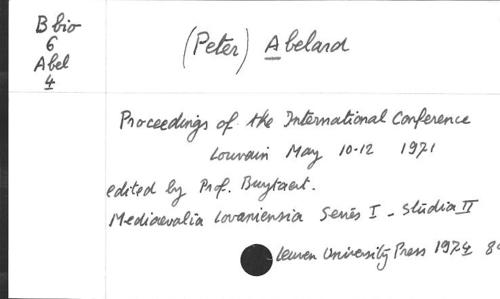 B bio
6
Abel
4
(Peter) Abelard
Proceedings of the International Conference
Louvain May 10-12 1971
edited by Prof. Buytaert.
Mediaevalia Lovaniensia Series I - Studia II
Leuven University Press 1974